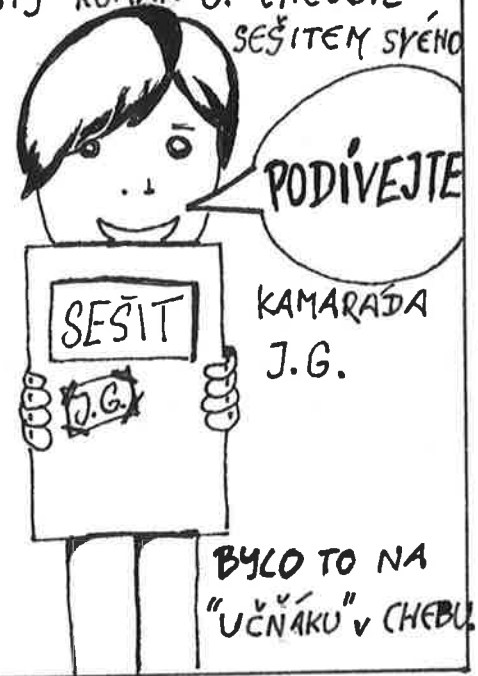 SEŠITEM SVÉHO
PODÍVEJTE
SEŠIT
J.G.
KAMARÁDA
J.G.
BYLO TO NA
"UČŇÁKU" v CHEBU.